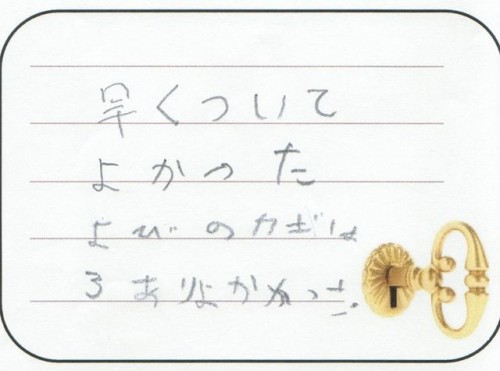 早くついて
よかった
よびのカギは
3ありよかかった.